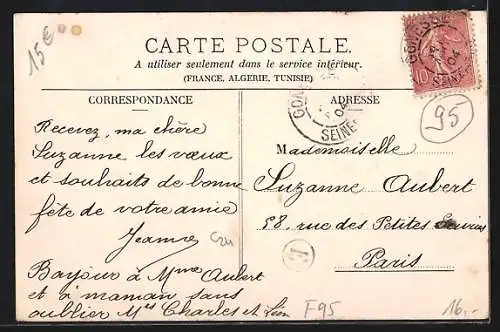 15€
CARTE POSTALE.
A utiliser seulement dans le service intérieur.
(FRANCE, ALGERIE, TUNISIE)
CORRESPONDANCE
ADRESSE
GONESSE
04
SEINE
10
95
Recevez, ma chère
Suzanne les vœux
et souhaits de bonne
fête de votre amie
Jeanne
Bonjour à Mme Aubert
et à maman sans
oublier Mrs Charles et
Mademoiselle
Suzanne Aubert
58, rue des Petites Ecuries
Paris
F95
16.-